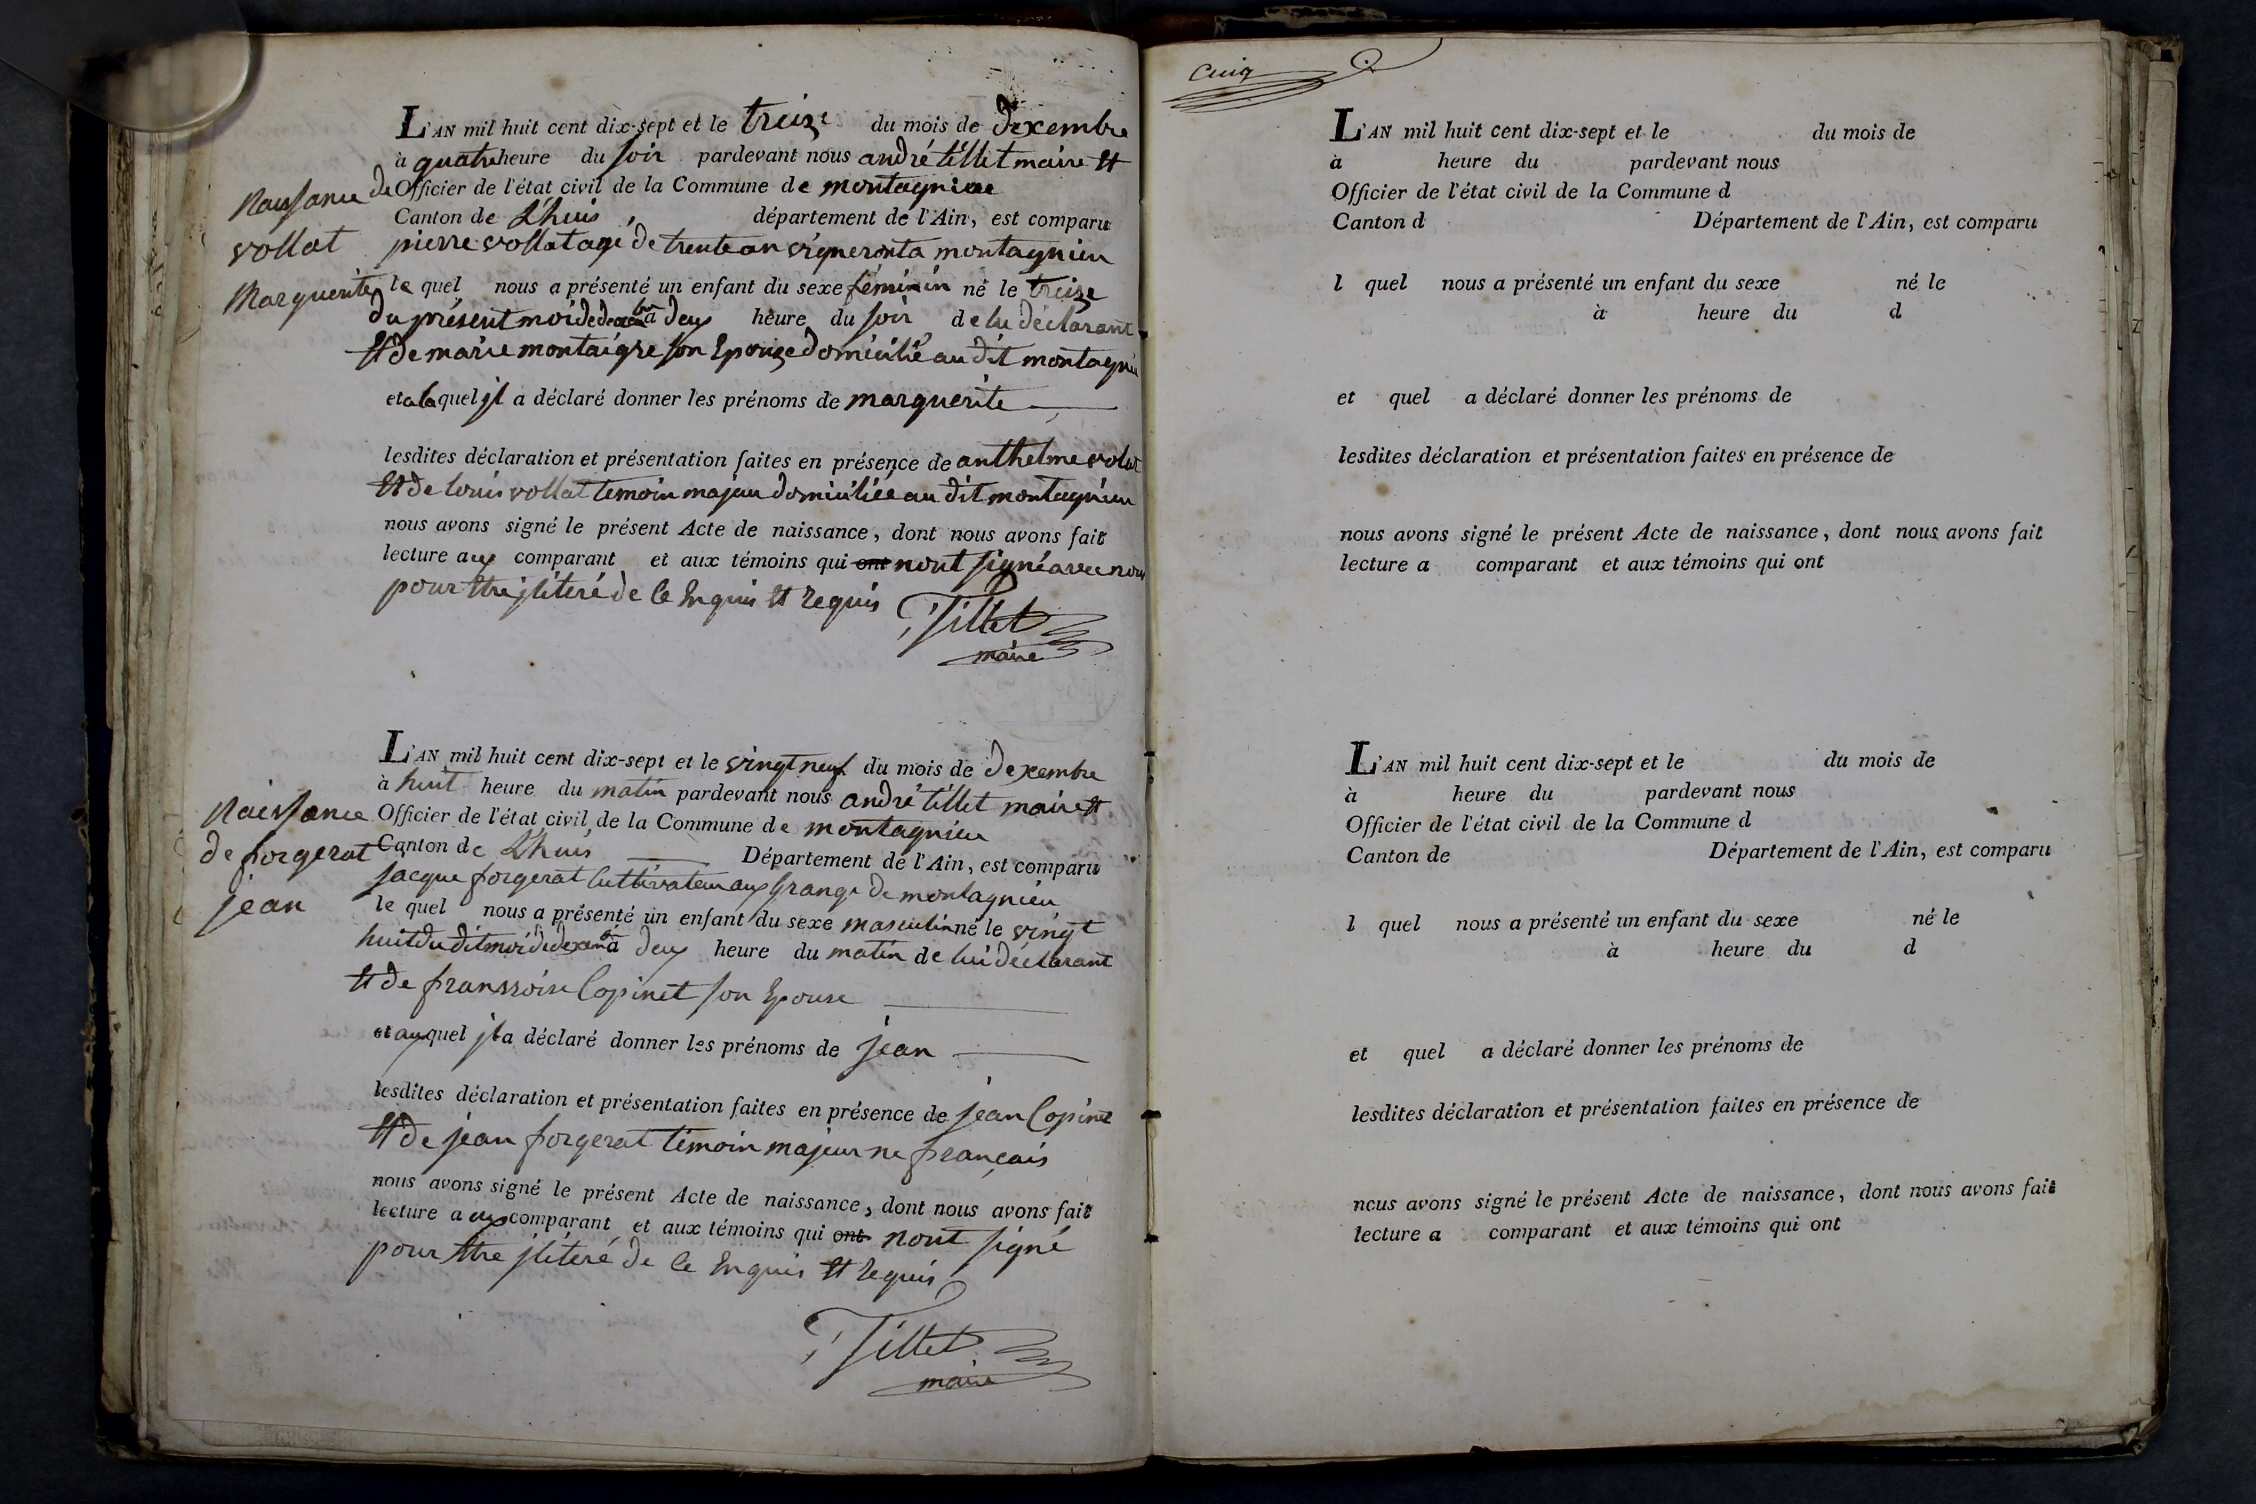 L'AN mil huit cent dix-sept et le treize du mois de dexembre
à quatre heure du soir pardevant nous andré tillit maire et
Naissance de
Officier de l'état civil de la Commune de montagnieu
Canton de Lhuis, département de l'Ain, est comparu
vollat
pierre vollat agé de trente an vigneront a montagnieu
Marguerite
le quel nous a présenté un enfant du sexe féminin né le treize
du présent moi de dexembre à deux heure du soir de lui déclarant
et de marie montaigre son Epouze domicilié au dit montagnieu
et a la quel jl a déclaré donner les prénoms de marguerite
lesdites déclaration et présentation faites en présence de anthelme volat
et de louis vollat temoin majeu domiciliée au dit montagnieu
nous avons signé le présent Acte de naissance, dont nous avons fait
lecture aux comparant et aux témoins qui ont nont signé avec nous
pour etre jliteré de ce Enquis et requis
Tillet
maire
L'AN mil huit cent dix-sept et le vingt neuf du mois de dexembre
à huit heure du matin pardevant nous andré tillit maire et
Naissance
Officier de l'état civil de la Commune de montagnieu
de forgerat
Canton de Lhuis Département de l'Ain, est comparu
jacque forgerat Cultivateur aux Grange de montagnieu
jean
le quel nous a présenté un enfant du sexe masculin né le vingt
huit du dit moi de dexembre à deux heure du matin de lui déclarant
et de franssoise Copinet son Epouse
et auxquel jl a déclaré donner les prénoms de jean
lesdites déclaration et présentation faites en présence de jean Copinet
et de jean forgerat témoin majeur ne français
nous avons signé le présent Acte de naissance, dont nous avons fait
lecture a aux comparant et aux témoins qui ont nont signé
pour etre jliteré de ce Enquis et requis
Tillet
maire
cinq
L'AN mil huit cent dix-sept et le du mois de
à heure du pardevant nous
Officier de l'état civil de la Commune d
Canton d Département de l'Ain, est comparu
l quel nous a présenté un enfant du sexe né le
à heure du d
et quel a déclaré donner les prénoms de
lesdites déclaration et présentation faites en présence de
nous avons signé le présent Acte de naissance, dont nous avons fait
lecture a comparant et aux témoins qui ont
L'AN mil huit cent dix-sept et le du mois de
à heure du pardevant nous
Officier de l'état civil de la Commune d
Canton de Département de l'Ain, est comparu
l quel nous a présenté un enfant du sexe né le
à heure du d
et quel a déclaré donner les prénoms de
lesdites déclaration et présentation faites en présence de
nous avons signé le présent Acte de naissance, dont nous avons fait
lecture a comparant et aux témoins qui ont